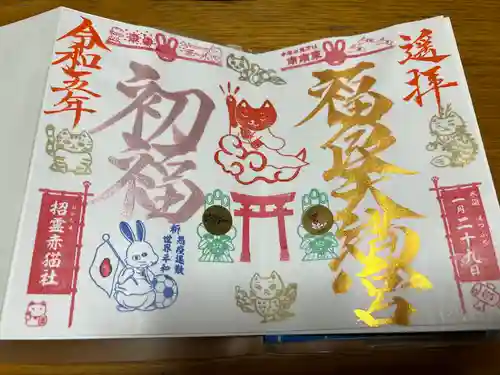 遙拝
一月二十九日
福良天満宮
初福
令和五年
招霊赤猫社
祈 悪疫退散
世界平和